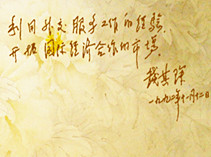 利用外交服务工作的经验
开拓国际经济合作的市场
钱其琛
一九九二年十一月十二日